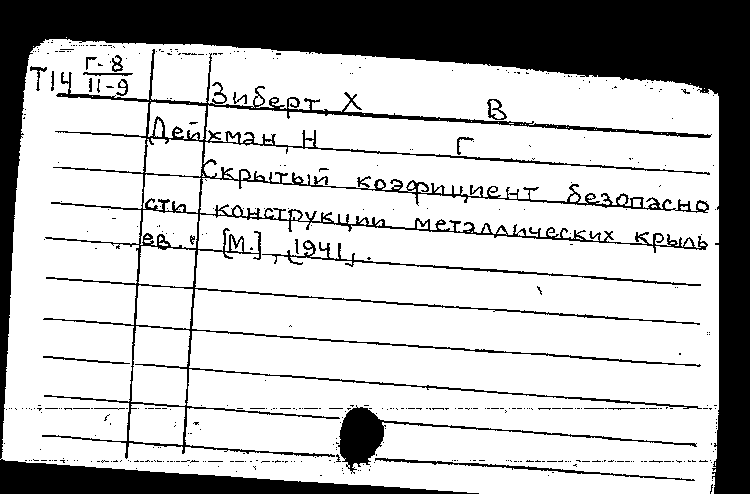 Т14 Г-8
II-9
Зиберт, Х В
Дейхман, Н Г
Скрытый коэфициент безопасно
сти конструкции металлических крыль
ев. [М.], 1941.